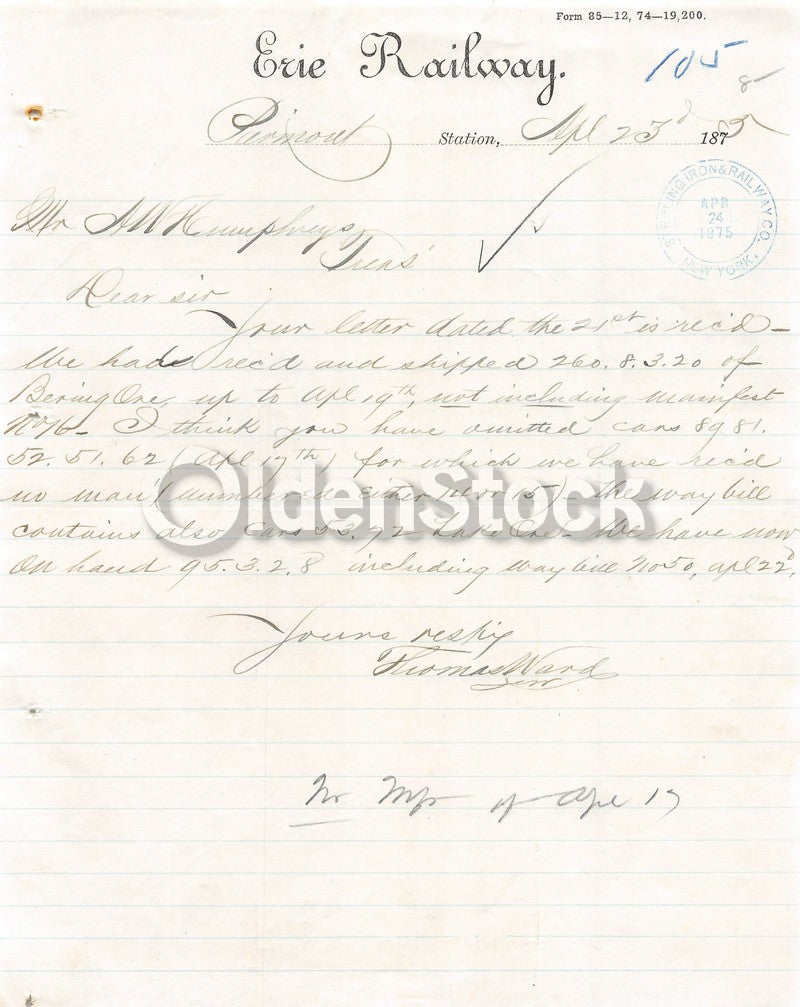 Form 85—12, 74—19,200.
Erie Railway.
105
8
Piermont Station, Apl 23d 1875
STERLING IRON & RAILWAY CO.
APR
24
1875
NEW YORK.
Mr A W Humphreys
Treas'
Dear sir
Your letter dated the 21st is rec'd –
We had rec'd and shipped 260.8.3.20 of
Bering Ore up to Apl 19th, not including manifest
No 16 – I think you have omitted cars 8981.
52. 51. 62 (Apl 17th) for which we have rec'd
no man (numbered either 14 or 15) – the way bill
contains also cars 53.72 Lake Ore – We have now
On hand 95.3.2.8 including way bill No 50, apl 22d.
Yours respy
Thomas Ward
of Apl 17
OldenStock